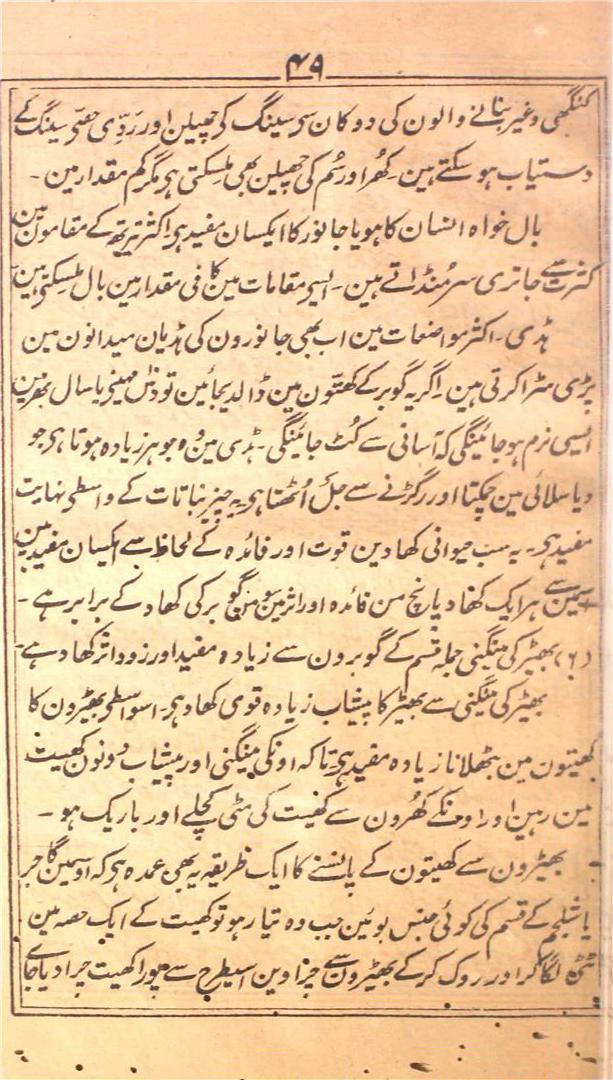 ۴۹
کنگھی وغیر بنانے والون کی دوکان سی سینگ کی چھیلن اور ردّی حصّی سینگ کے
دستیاب ہو سکتے ہین۔ کھُر اور سُم کی چھیلن بھی ملسکتی ہی مگر کم مقدار مین۔
بال خواہ انسان کا ہو یا جانور کا ایکسان مفید ہی اکثر تیرتھ کے مقامون مین
کثرت سے جاتری سر مُنڈاتے ہین۔ ایسی مقامات مین کافی مقدار مین بال ملسکتی ہین
ہڈی۔ اکثر مواضعات مین اب بھی جانورون کی ہڈیان میدانون مین
پڑی سڑا کرتی ہین۔ اگر یہ گوبر کے کھتّون مین ڈالدیجائین تو دس مہینی یا سال بھر مین
ایسی نرم ہو جائینگی کہ آسانی سے کُٹ جائینگی۔ ہڈی مین وُہ جوہر زیادہ ہوتا ہی جو
دیا سلائی مین چمکتا اور رگڑنے سے جل اُٹھتا ہی۔ یہ چیز نباتات کے واسطی نہایت
مفید ہی۔ یہ سب حیوانی کھادین قوت اور فائدہ کے لحاظ سے ایکسان مفید ہین
اسمین سے ہر ایک کھاد پانچ من فائدہ اور اثر مین سو من گوبر کی کھاد کے برابر ہے۔
(۶) بھیڑ کی مینگنی جملہ قسم کے گوبرون سے زیادہ مفید اور زود اثر کھاد ہے۔
بھیڑ کی مینگنی سے بھیڑ کا پیشاب زیادہ قوی کھاد ہی۔ اسواسطی بھیڑون کا
کھیتون مین بٹھلانا زیادہ مفید ہی تاکہ اونکی مینگنی اور پیشاب دونون کھیت
مین رہین اور اونکے کھُرون سے کھیت کی مٹی کچلے اور باریک ہو۔
بھیڑون سے کھیتون کے پانسنے کا ایک طریقہ یہ بھی عمدہ ہی کہ اوسمین گاجر
یا شلجم کے قسم کی کوئی جنس بوئین جب وہ تیار ہو تو کھیت کے ایک حصہ مین
ٹٹی لگا کر اور روک کر کے بھیڑون سے چراوین اسیطرح سے پورا کھیت چرا دیا جای